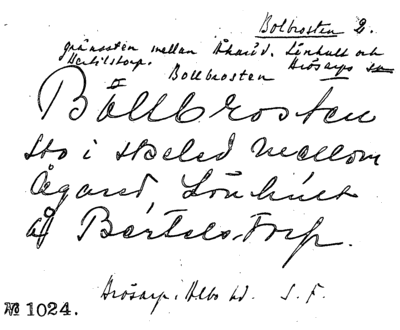 Bolbrosten 2.
gränssten mellan Åkaröd, Lönhult och
Hertilstorp. Bollbrosten Brösarps sn
Bollbrosten
sto i skeled mellom
Ågarød, Lönhúlt
å Bertels-torp.
Brösarp, Albo hd. S. F.
№ 1024.